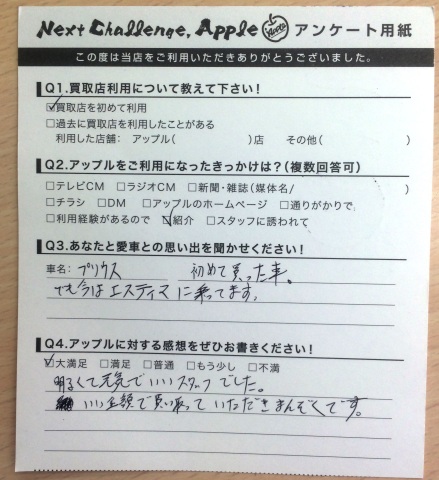 Next Challenge, Apple Apple アンケート用紙
この度は当店をご利用いただきありがとうございました。
Q1.買取店利用について教えて下さい!
☑買取店を初めて利用
□過去に買取店を利用したことがある
利用した店舗: アップル( )店 その他( )
Q2.アップルをご利用になったきっかけは?(複数回答可)
□テレビCM □ラジオCM □新聞・雑誌(媒体名/ )
□チラシ □DM □アップルのホームページ □通りがかりで
□利用経験があるので ☑紹介 □スタッフに誘われて
Q3.あなたと愛車との思い出を聞かせください!
車名: プリウス 初めて買った車。
でも今はエスティマに乗ってます。
Q4.アップルに対する感想をぜひお書きください!
☑大満足 □満足 □普通 □もう少し □不満
明るくて元気でいいスタッフでした。
いい金額で買い取っていただきまんぞくです。